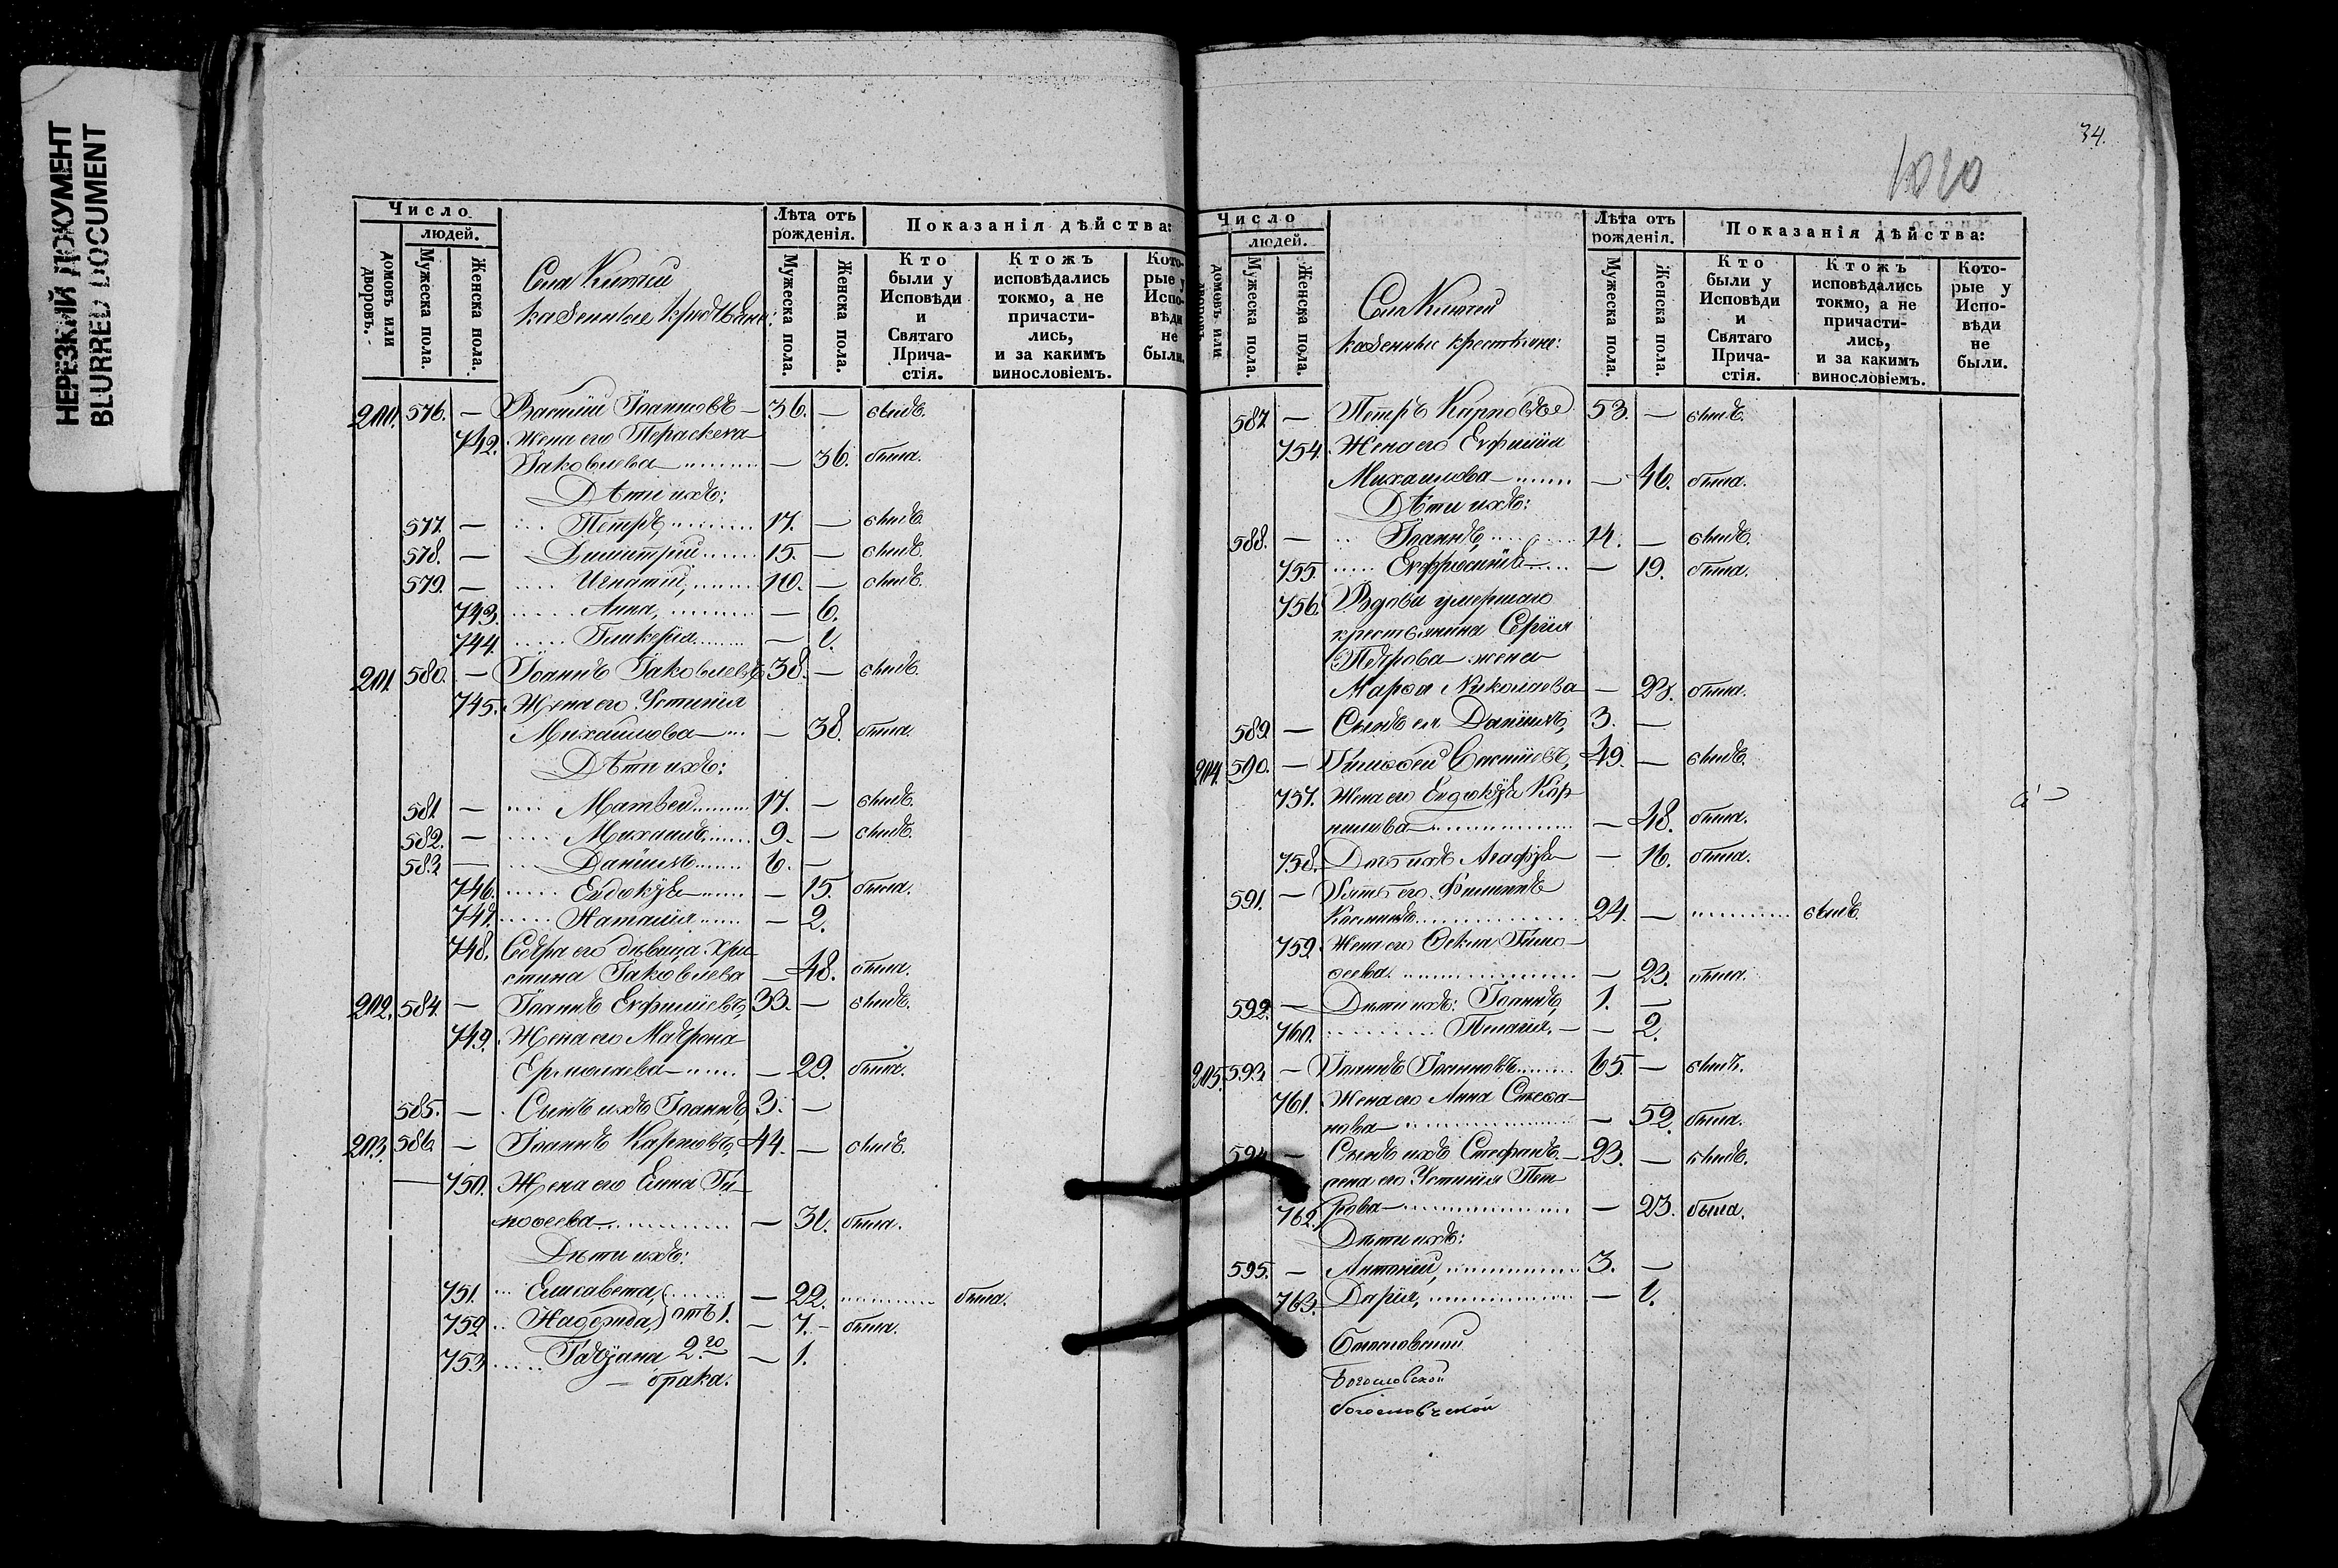 НЕРЕЗКИЙ ДОКУМЕНТ
BLURRED DOCUMENT
Число
людей.
домовъ или дворовъ.
Мужеска пола.
Женска пола.
казенные крестьяне:
Лѣта отъ рожденія.
Мужеска пола.
Женска пола.
Показанія дѣйства:
Кто были у Исповѣди и Святаго Причастія.
Ктожъ исповѣдались токмо, а не причастились, и за какимъ винословіемъ.
Которые у Исповѣди не были.
200. 576. — Василій Іоанновъ — 36. — былъ.
742. Жена его Параскева
Іаковлева — — 36. была.
Дѣти ихъ:
577. — Петръ, 17. — былъ.
578. — Димитрій 15. — былъ.
579. — Игнатій, 10. — былъ.
743. Анна, — 6.
744. Гликерія — 1.
201. 580. — Іоаннъ Іаковлевъ 38. — былъ.
745. Жена его Устинія
Михаилова — — 38. была.
Дѣти ихъ:
581. — Матвей 17. — былъ.
582. — Михаилъ, 9. — былъ.
583. — Даніилъ 6. —
746. Евдокія — 15. была.
747. Наталія — 2.
748. Сестра его дѣвица Хри-
стина Іаковлева — 48. была.
202. 584. — Іоаннъ Евфиміевъ, 33. — былъ.
749. Жена его Матрона
Ермолаева — — 29. была.
585. — Сынъ ихъ Іоаннъ, 3. —
203. 586. — Іоаннъ Карповъ, 44. — былъ.
750. Жена его Елена Ти-
моѳеева — — 31. была.
Дѣти ихъ:
751. Елисавета, — 22. была.
752. Надежда, отъ 1. — 7. — была.
753. Татіана 2го — 1.
брака.
34.
1020
Число
людей.
домовъ или дворовъ.
Мужеска пола.
Женска пола.
казенные крестьяне:
Лѣта отъ рожденія.
Мужеска пола.
Женска пола.
Показанія дѣйства:
Кто были у Исповѣди и Святаго Причастія.
Ктожъ исповѣдались токмо, а не причастились, и за какимъ винословіемъ.
Которые у Исповѣди не были.
587. — Петръ Карповъ 53. — былъ.
754. Жена его Евфимія
Михаилова — — 46. была.
Дѣти ихъ:
588. — Іоаннъ, 14. — былъ.
755. Евфросинія — 19. была.
756. Вдова умершаго
крестьянина Сергія
Петрова жена
Марѳа Николаева — 23. была.
589. — Сынъ ея Даніилъ, 3. —
204. 590. — Тимоѳей Василіевъ, 49. — былъ.
757. Жена его Евдокія Кор-
нилова — — 48. была.
758. Дочь ихъ Агафія — 16. была.
591. — Зять его Филиппъ
24. — былъ.
759. Жена его Ѳекла Тимо-
ѳеева. — 23. была.
592. — Дѣти ихъ: Іоаннъ, 1. —
760. Пелагія, — — 2.
205. 593. — Іоаннъ Іоанновъ 65. — былъ.
761. Жена его Анна Стефа-
нова — — 52. была.
594. — Сынъ ихъ Стефанъ — 23. — былъ.
жена его Устинія Пет-
762. рова — — 23. была.
Дѣти ихъ:
595. — Антоній, 3. —
763. Дарія, — 1.
Богословской
богословской